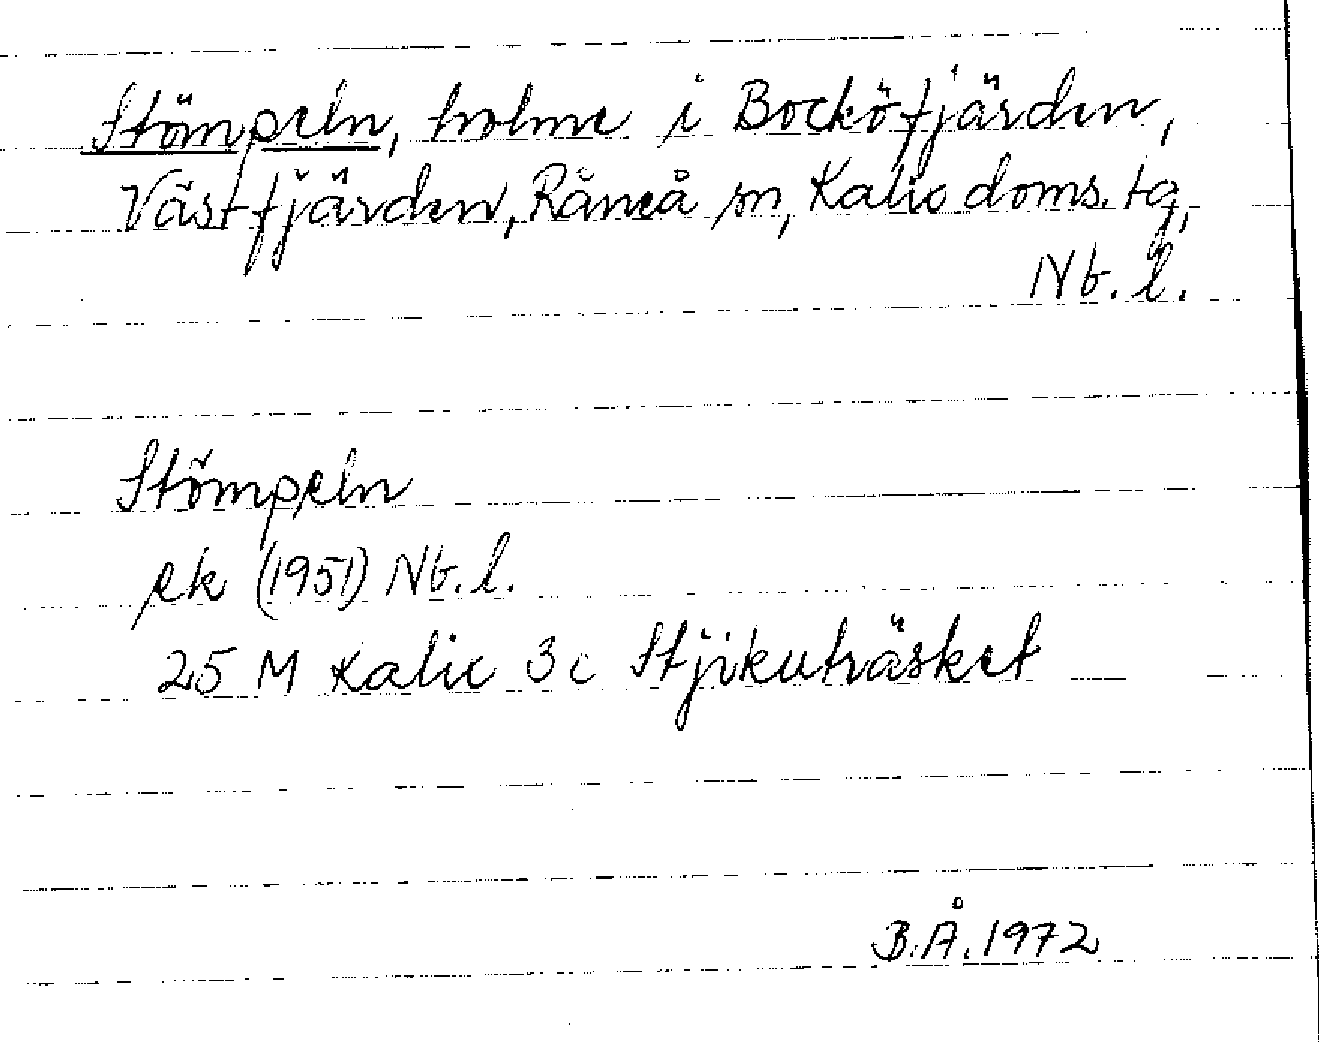 Stömpeln, holme i Bocköfjärden,
Västfjärden, Råneå sn, Kalix doms. tg,
Nb. l.
Stömpeln
ek (1951) Nb. l.
25 M Kalix 3 c Stjikuträsket
B.Å. 1972